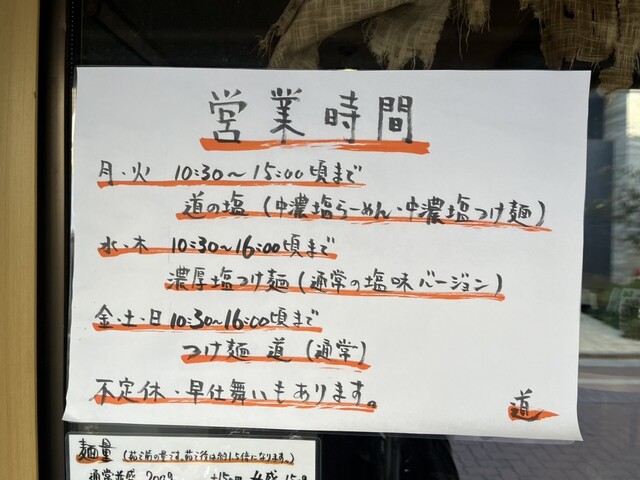 営業時間
月・火 10:30〜15:00頃まで
道の塩 (中濃塩らーめん・中濃塩つけ麺)
水・木 10:30〜16:00頃まで
濃厚塩つけ麺 (通常の塩味バージョン)
金・土・日 10:30〜16:00頃まで
つけ麺 道 (通常)
不定休・早仕舞いもあります。
道
麺量 (茹で前の量です。茹で後は約1.5倍になります。)
通常並盛 200g